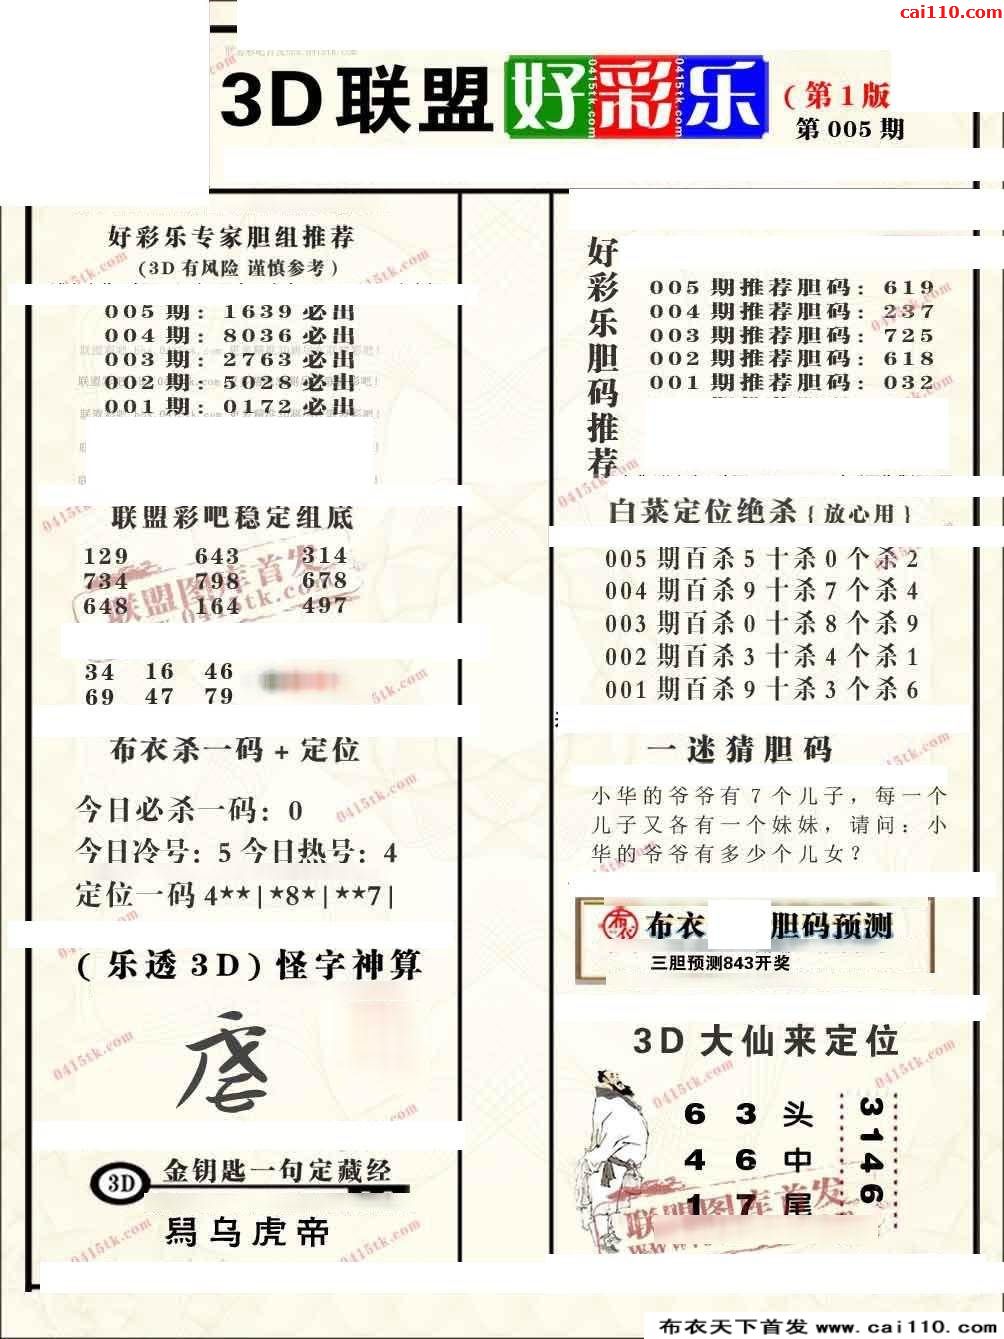 cai110.com
3D联盟好彩乐
(第1版
第005期
好彩乐专家胆组推荐
(3D有风险 谨慎参考)
005期: 1639必出
004期: 8036必出
003期: 2763必出
002期: 5028必出
001期: 0172必出
联盟彩吧稳定组底
129 643 314
734 798 678
648 164 497
34 16 46
69 47 79
布衣杀一码+定位
今日必杀一码: 0
今日冷号: 5 今日热号: 4
定位一码 4**|*8*|**7|
(乐透3D)怪字神算
3D 金钥匙一句定藏经
乌虎帝
好彩乐胆码推荐
005期推荐胆码: 619
004期推荐胆码: 237
003期推荐胆码: 725
002期推荐胆码: 618
001期推荐胆码: 032
白菜定位绝杀{放心用}
005期百杀5十杀0个杀2
004期百杀9十杀7个杀4
003期百杀0十杀8个杀9
002期百杀3十杀4个杀1
001期百杀9十杀3个杀6
一迷猜胆码
小华的爷爷有7个儿子，每一个
儿子又各有一个妹妹，请问：小
华的爷爷有多少个儿女？
布衣 胆码预测
三胆预测843开奖
3D大仙来定位
6 3 头
4 6 中
1 7 尾
3146
联盟图库首发
0415tk.com
布衣天下首发 www.cai110.com